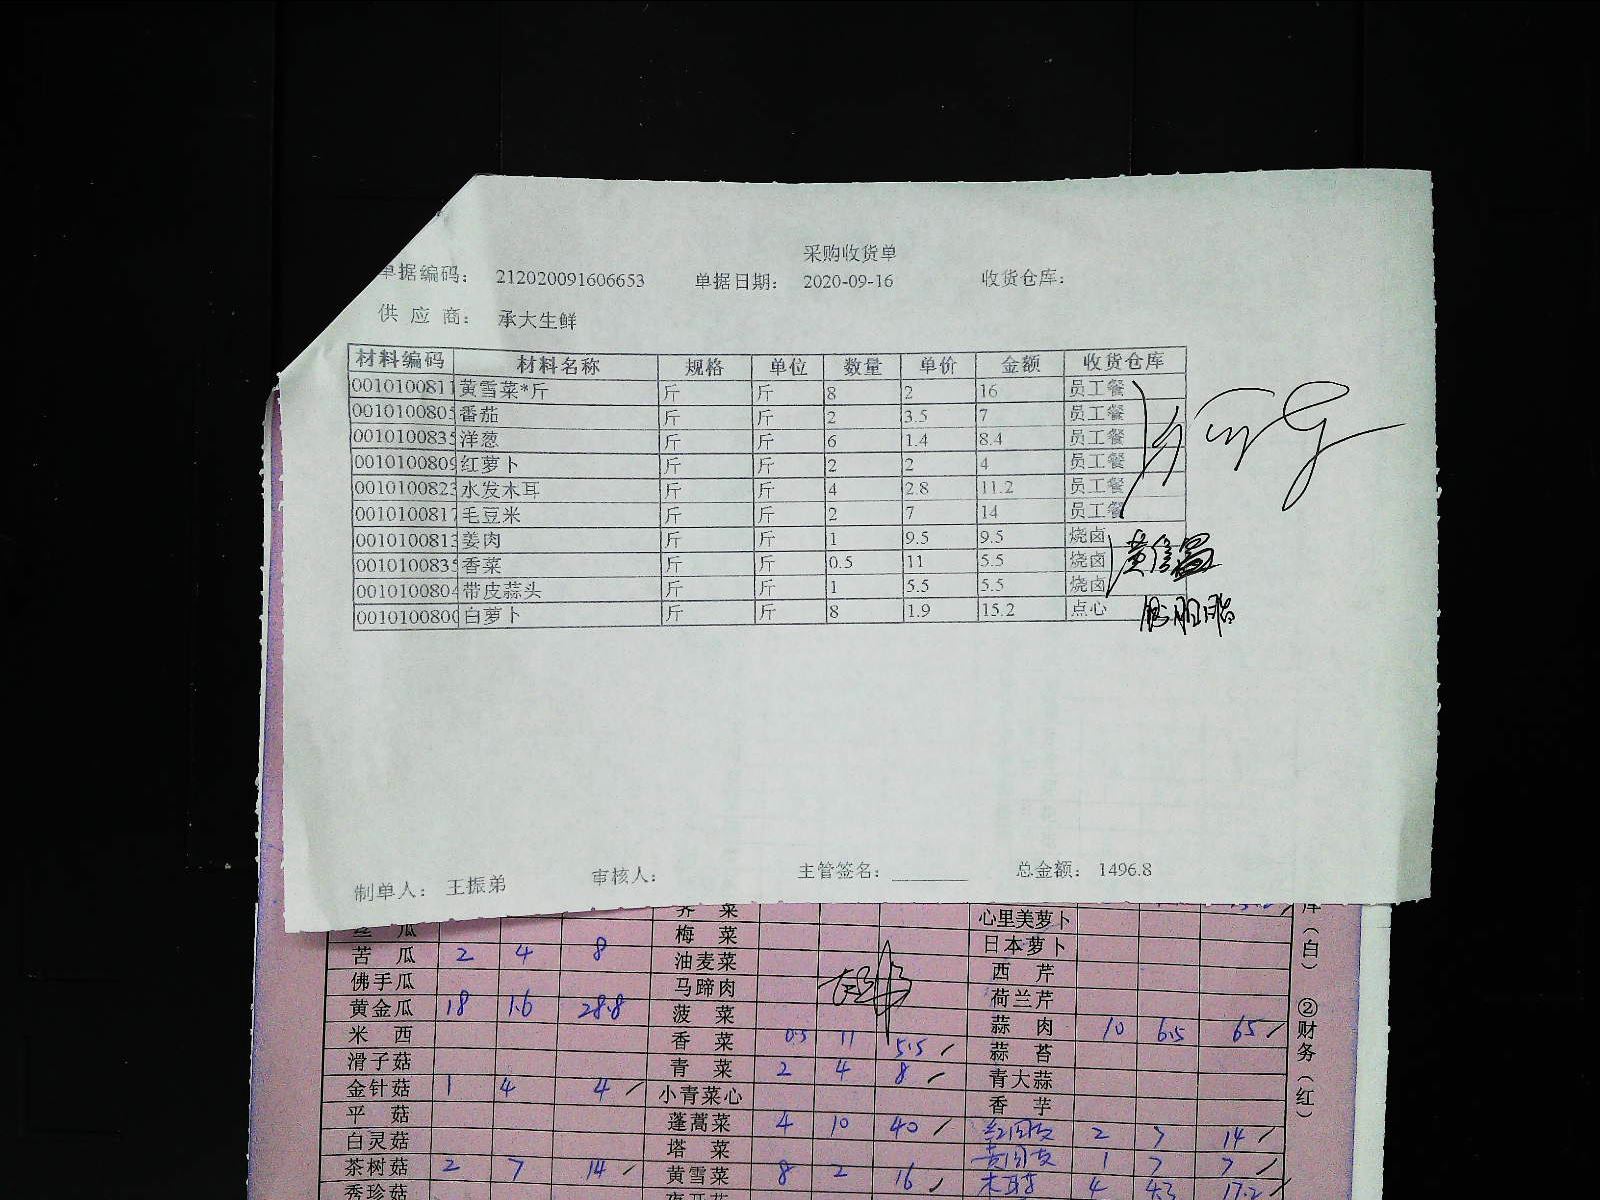 采购收货单
单据编码： 212020091606653 单据日期： 2020-09-16 收货仓库：
供 应 商： 承大生鲜
材料编码 材料名称 规格 单位 数量 单价 金额 收货仓库
0010100811 黄雪菜*斤 斤 斤 8 2 16 员工餐
0010100805 番茄 斤 斤 2 3.5 7 员工餐
0010100835 洋葱 斤 斤 6 1.4 8.4 员工餐
0010100809 红萝卜 斤 斤 2 2 4 员工餐
0010100823 水发木耳 斤 斤 4 2.8 11.2 员工餐
0010100817 毛豆米 斤 斤 2 7 14 员工餐
0010100813 姜肉 斤 斤 1 9.5 9.5 烧卤
0010100835 香菜 斤 斤 0.5 11 5.5 烧卤
0010100804 带皮蒜头 斤 斤 1 5.5 5.5 烧卤
0010100800 白萝卜 斤 斤 8 1.9 15.2 点心
制单人： 王振弟 审核人： 主管签名： 总金额： 1496.8
心里美萝卜
梅 菜 日本萝卜
苦 瓜 2 4 8 油麦菜 西 芹
佛手瓜 马蹄肉 荷兰芹
黄金瓜 18 1.6 28.8 菠 菜 蒜 肉 10 6.5 65
米 西 香 菜 0.5 11 5.5 蒜 苔
滑子菇 青 菜 2 4 8 青大蒜
金针菇 1 4 4 小青菜心 香 芋
平 菇 蓬蒿菜 4 10 40 红圆支 2 7 14
白灵菇 塔 菜 黄圆支 1 7 7
茶树菇 2 7 14 黄雪菜 8 2 16 木耳 4 4.3 17.2
秀珍菇
（白） ②财务（红）